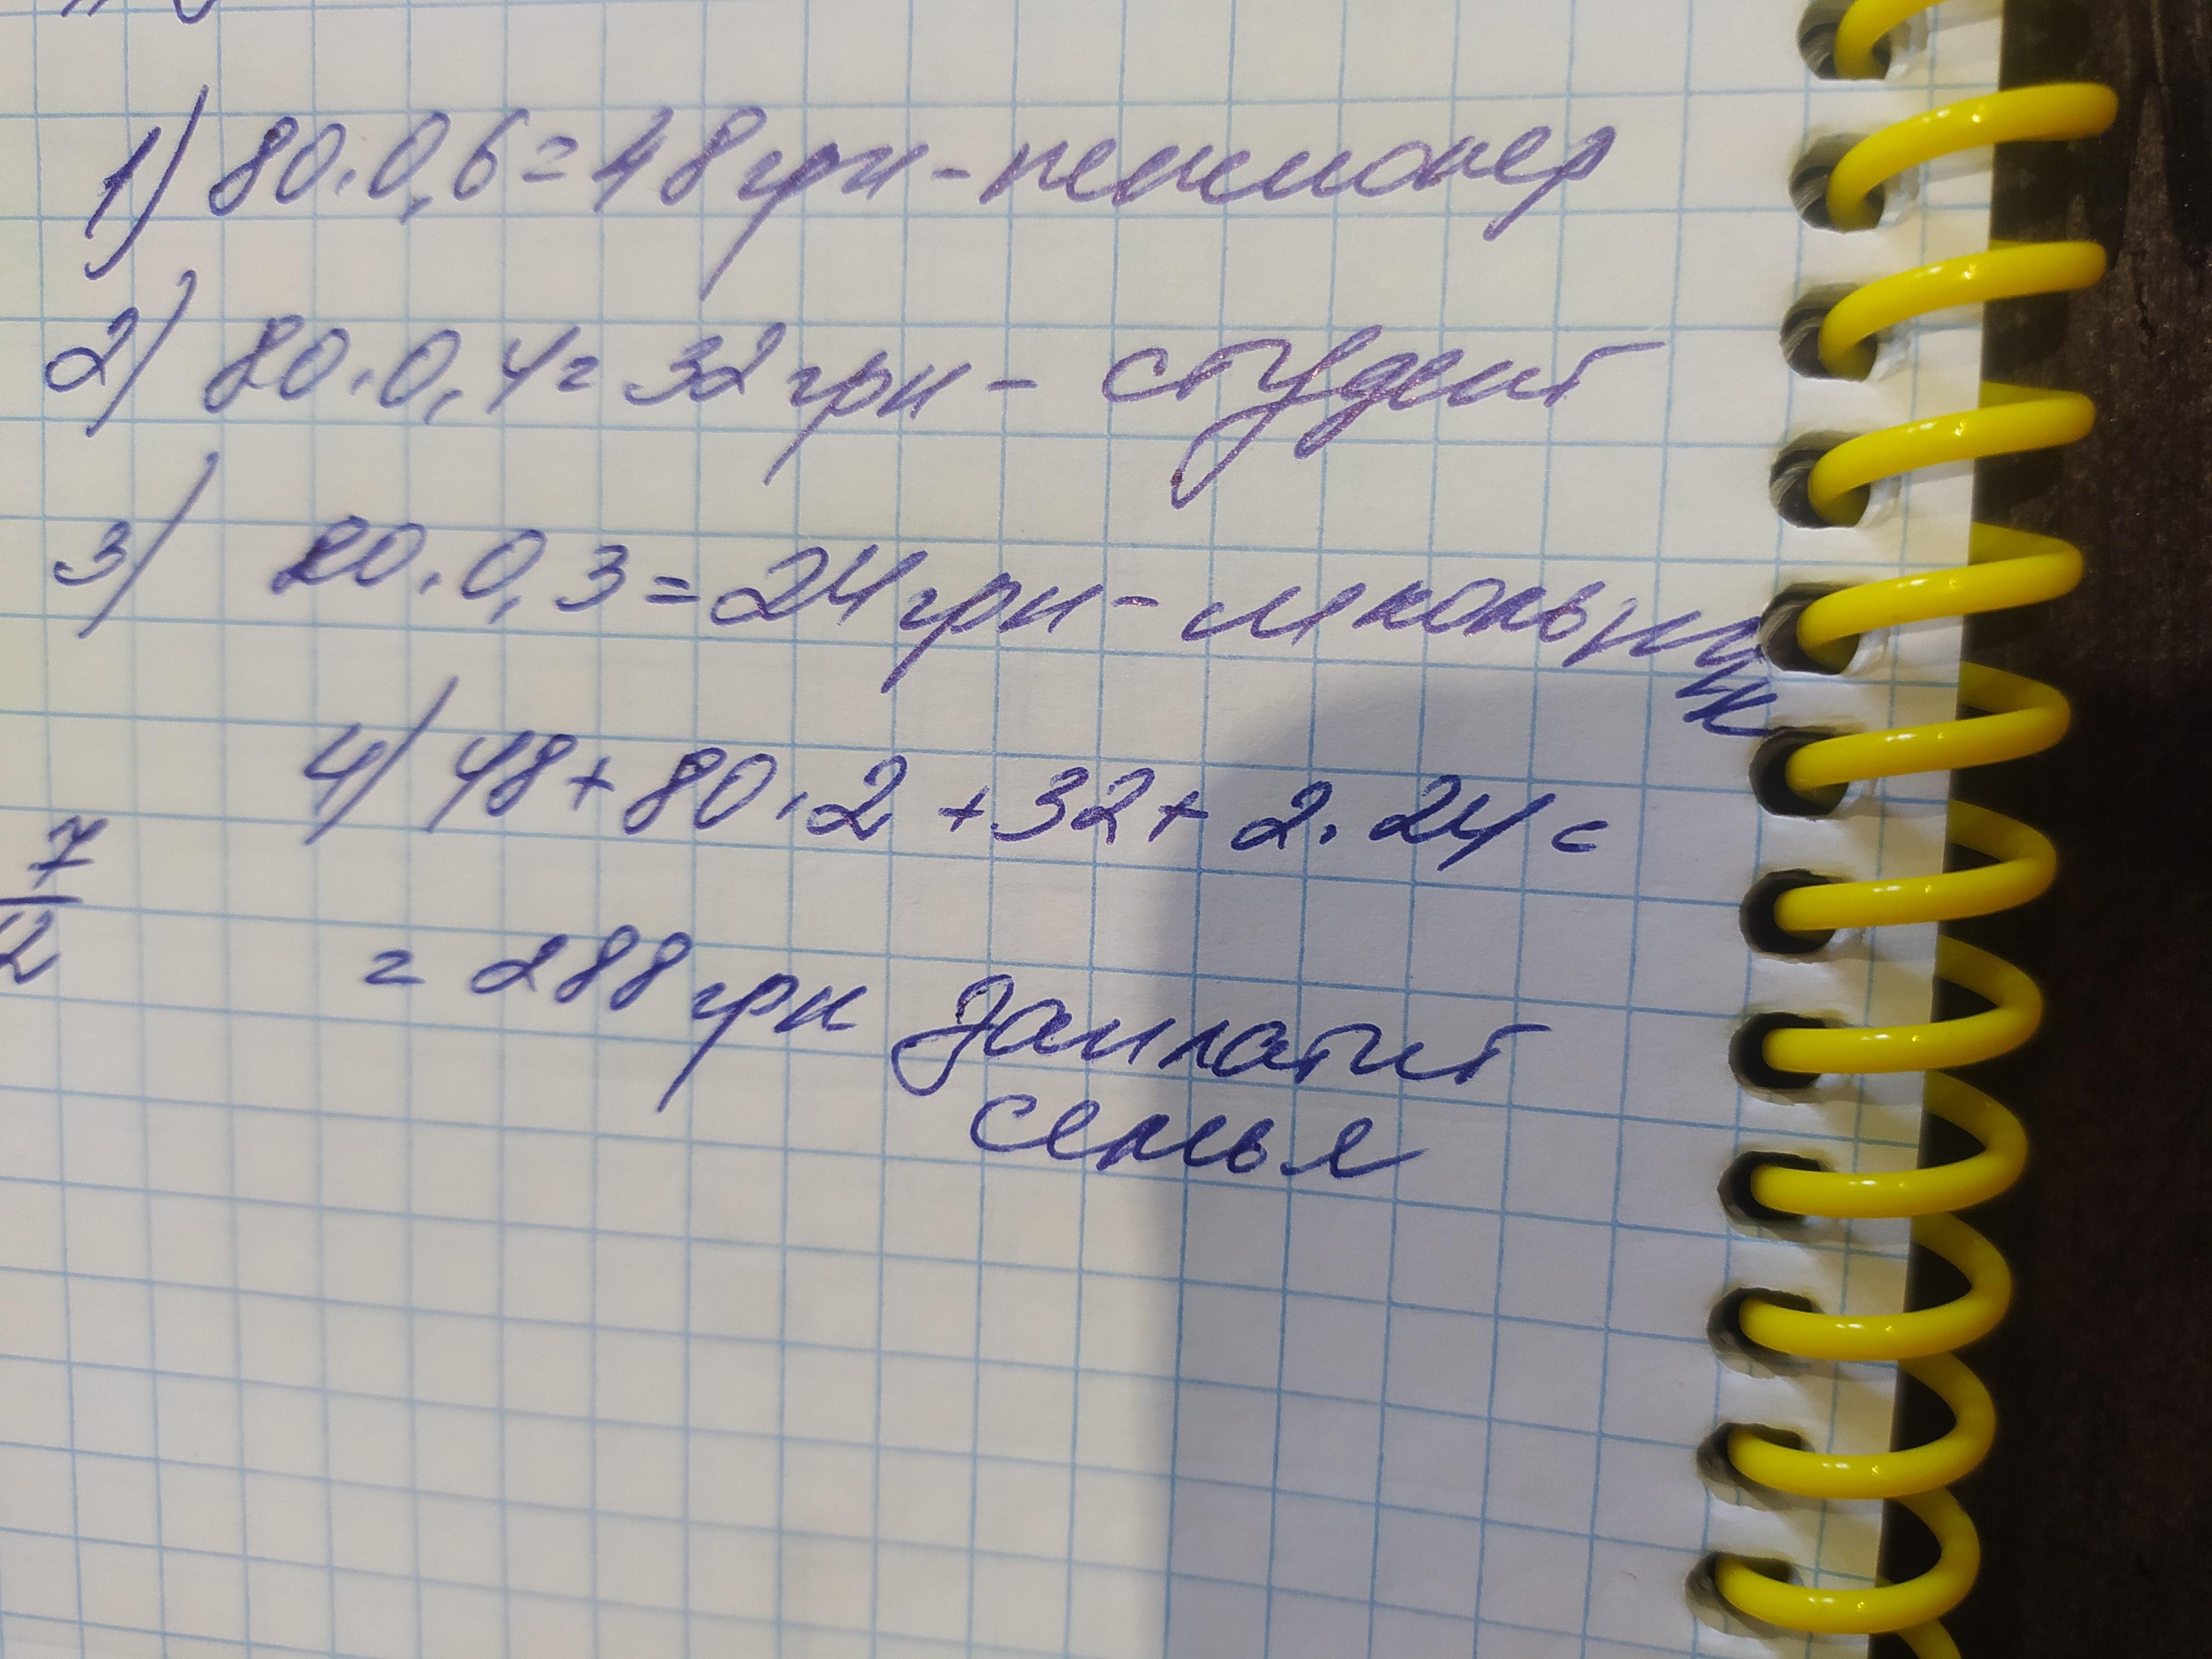 1) 80·0,6=48грн-пенсионер
2) 80·0,4=32грн- студент
3) 80·0,3=24грн-школьник
4) 48+80·2+32+2·24=
7
2
=288грн заплатит
семья